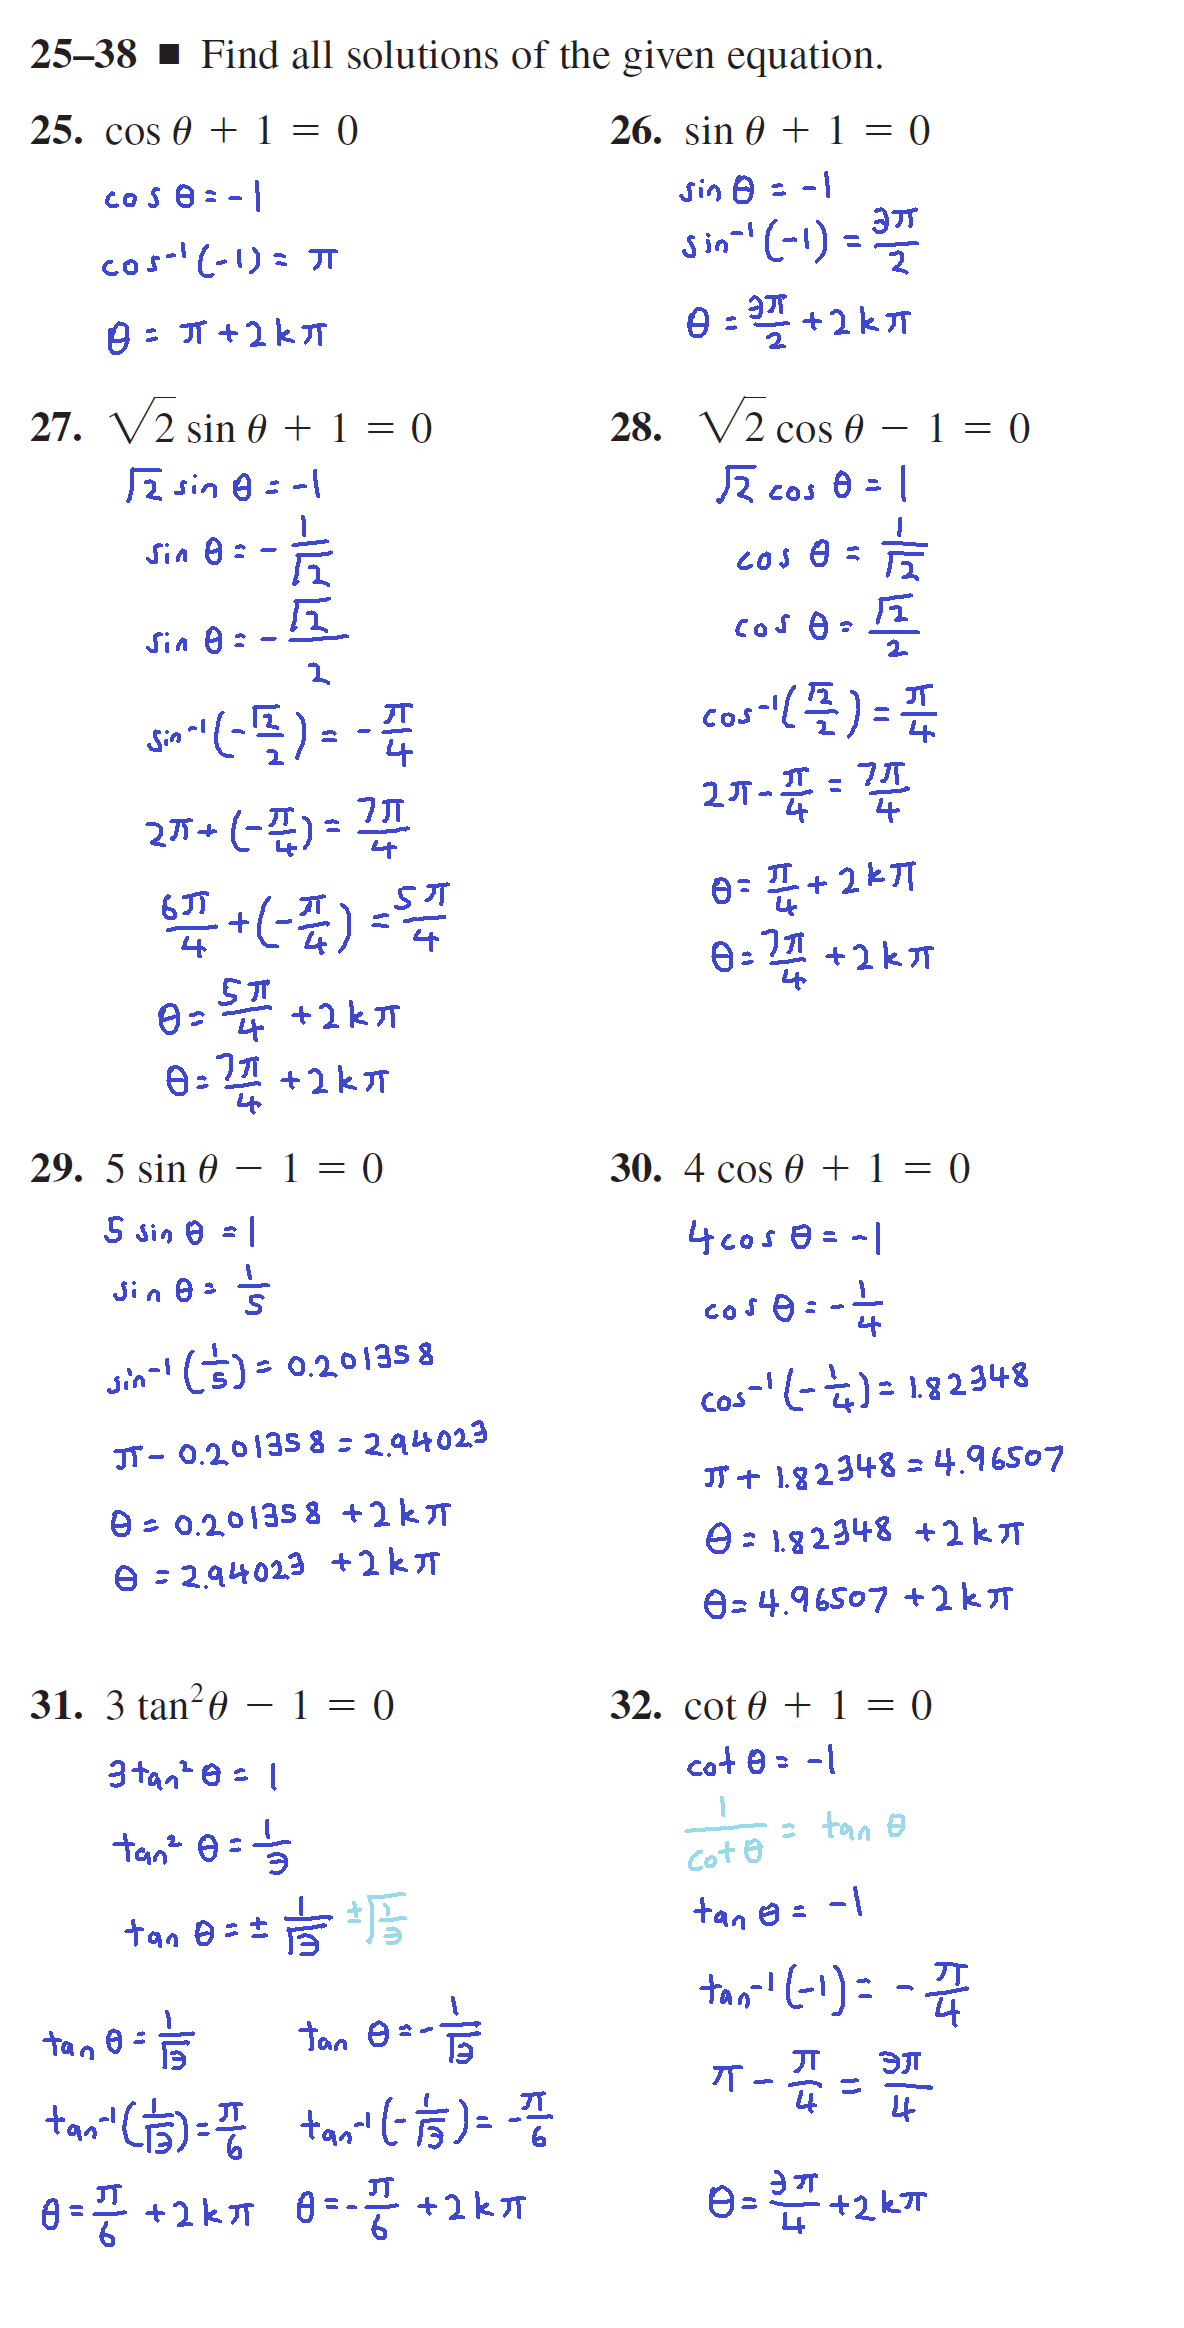 25–38 ■ Find all solutions of the given equation.
25. cos θ + 1 = 0
cos θ = -1
cos⁻¹(-1) = π
θ = π + 2kπ
26. sin θ + 1 = 0
sin θ = -1
sin⁻¹(-1) = 3π/2
θ = 3π/2 + 2kπ
27. √2 sin θ + 1 = 0
√2 sin θ = -1
sin θ = -1/√2
sin θ = -√2/2
sin⁻¹(-√2/2) = -π/4
2π + (-π/4) = 7π/4
6π/4 + (-π/4) = 5π/4
θ = 5π/4 + 2kπ
θ = 7π/4 + 2kπ
28. √2 cos θ − 1 = 0
√2 cos θ = 1
cos θ = 1/√2
cos θ = √2/2
cos⁻¹(√2/2) = π/4
2π - π/4 = 7π/4
θ = π/4 + 2kπ
θ = 7π/4 + 2kπ
29. 5 sin θ − 1 = 0
5 sin θ = 1
sin θ = 1/5
sin⁻¹(1/5) = 0.201358
π - 0.201358 = 2.94023
θ = 0.201358 + 2kπ
θ = 2.94023 + 2kπ
30. 4 cos θ + 1 = 0
4 cos θ = -1
cos θ = -1/4
cos⁻¹(-1/4) = 1.82348
π + 1.82348 = 4.96507
θ = 1.82348 + 2kπ
θ = 4.96507 + 2kπ
31. 3 tan²θ − 1 = 0
3 tan² θ = 1
tan² θ = 1/3
tan θ = ± 1/√3 ±√(1/3)
tan θ = 1/√3 tan θ = -1/√3
tan⁻¹(1/√3) = π/6 tan⁻¹(-1/√3) = -π/6
θ = π/6 + 2kπ θ = -π/6 + 2kπ
32. cot θ + 1 = 0
cot θ = -1
1/cot θ = tan θ
tan θ = -1
tan⁻¹(-1) = -π/4
π - π/4 = 3π/4
θ = 3π/4 + 2kπ